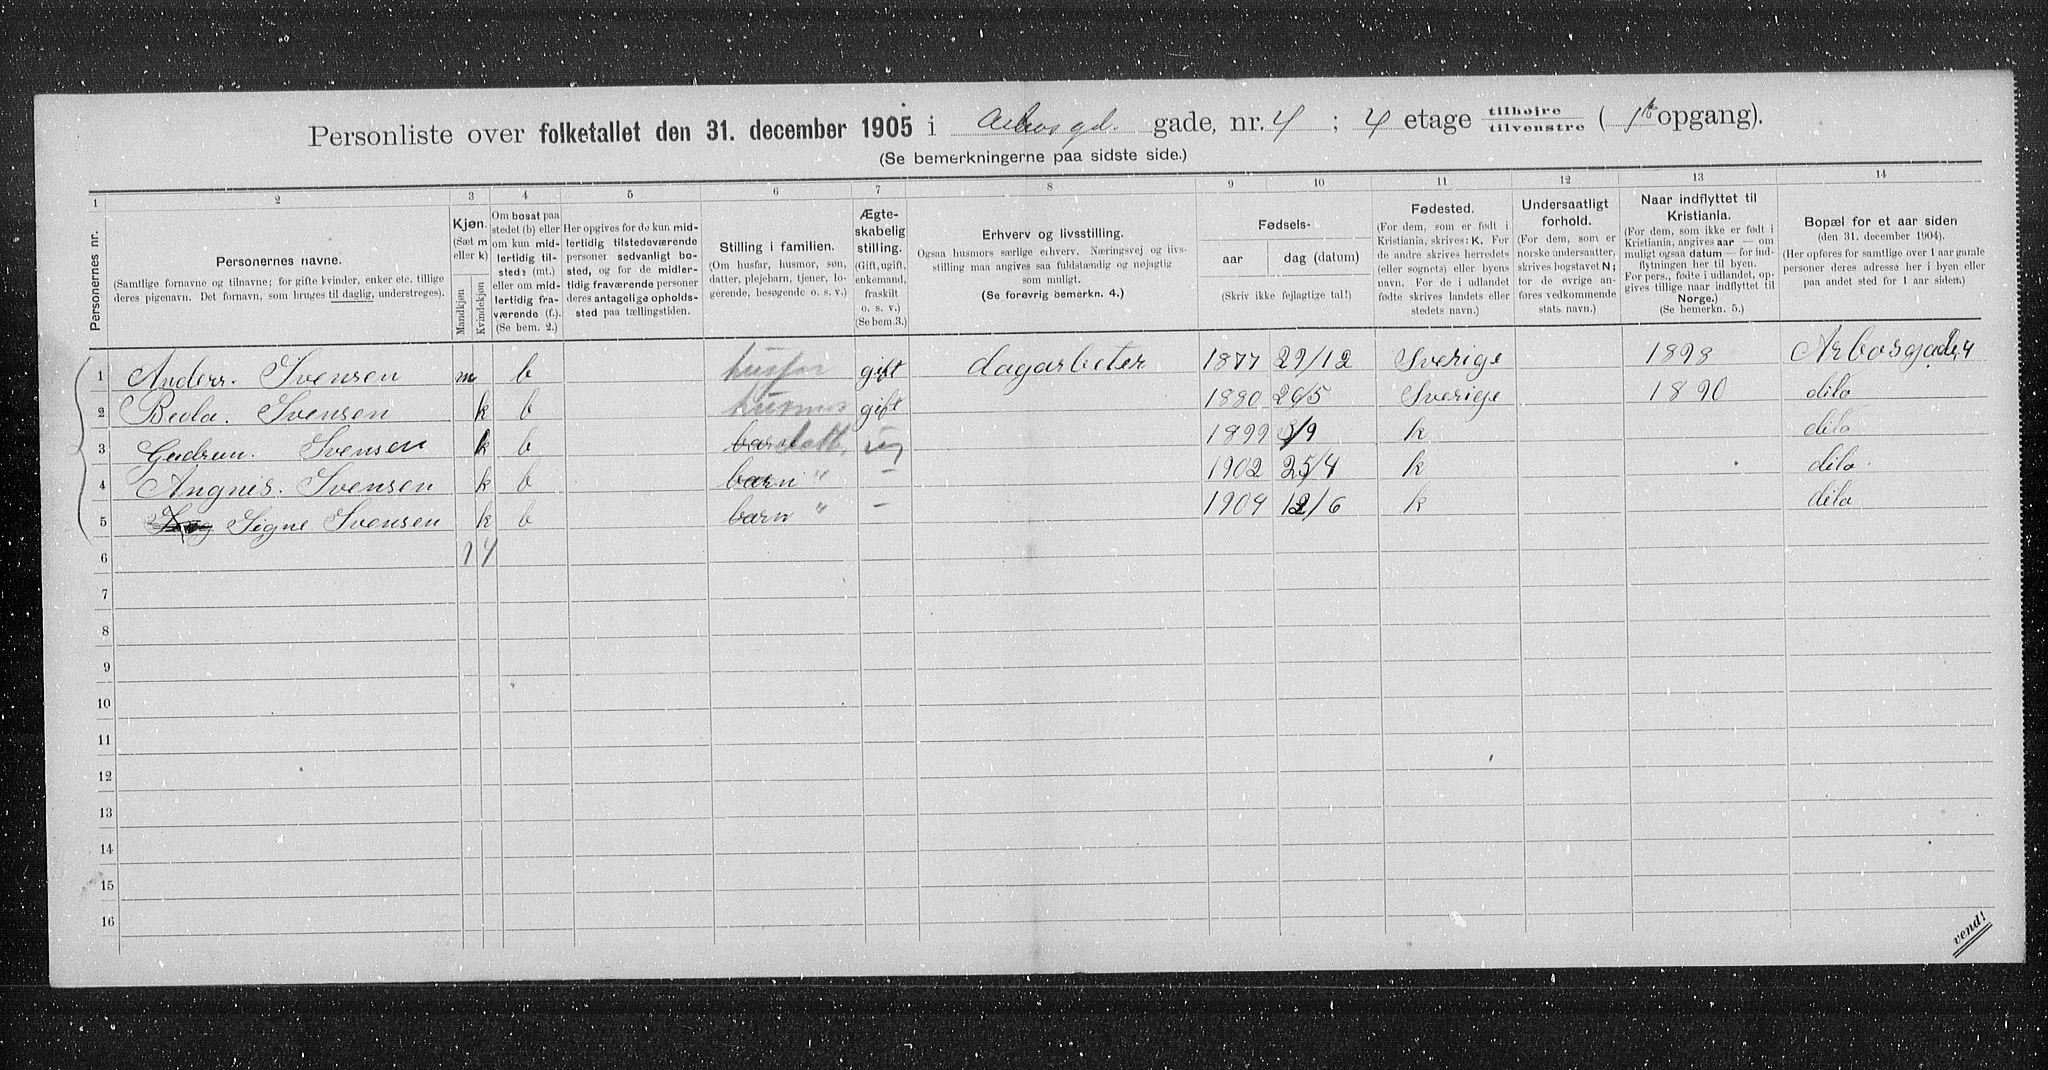 Personliste over folketallet den 31. december 1905 i Arbosgd. gade, nr. 4 ; 4 etage tilhøjre tilvenstre ( 1ste opgang).
(Se bemerkningerne paa sidste side.)
1 2 3 4 5 6 7 8 9 10 11 12 13 14
Personernes nr.
Personernes navne.
(Samtlige fornavne og tilnavne; for gifte kvinder, enker etc. tillige
deres pigenavn. Det fornavn, som bruges til daglig, understreges).
Kjøn.
(Sæt m
eller k)
Mandkjøn
Kvindekjøn
Om bosat paa
stedet (b) eller
om kun mid-
lertidig til-
stede (mt.)
eller om mid-
lertidig fra-
værende (f.).
(Se bem. 2.)
Her opgives for de kun mid-
lertidig tilstedeværende
personer sedvanligt bo-
sted, og for de midler-
tidig fraværende personer
deres antagelige opholds-
sted paa tællingstiden.
Stilling i familien.
(Om husfar, husmor, søn,
datter, plejebarn, tjener, lo-
gerende, besøgende o. s. v.)
Ægte-
skabelig
stilling.
(Gift, ugift,
enkemand,
fraskilt
o. s. v.)
(Se bem. 3.)
Erhverv og livsstilling.
Ogsaa husmors særlige erhverv. Næringsvej og livs-
stilling maa angives saa fuldstændig og nøjagtig
som muligt.
(Se forøvrig bemerkn. 4.)
Fødsels-
aar dag (datum)
(Skriv ikke fejlagtige tal!)
Fødested.
(For dem, som er født i
Kristiania, skrives: K. For
de andre skrives herredets
(eller sognets) eller byens
navn. For de i udlandet
fødte skrives landets eller
stedets navn.)
Undersaatligt
forhold.
(For dem, som er
norske undersaatter,
skrives bogstavet N;
for de øvrige an-
føres vedkommende
stats navn.)
Naar indflyttet til
Kristiania.
(For dem, som ikke er født
i Kristiania, angives aar — om
muligt ogsaa datum — for ind-
flytningen her til byen.
For pers., fødte i udlandet, op-
gives tillige naar indflyttet til
Norge.)
(Se bemerkn. 5.)
Bopæl for et aar siden
(den 31. december 1904).
(Her opføres for samtlige over 1 aar gamle
personer deres adresse her i byen eller
paa andet sted for 1 aar siden.)
1 Anders. Svensen m b husfar gift dagarbeter 1877 29/12 Sverige 1898 Arbosgade 4
2 Beda. Svensen k b husmor gift 1880 26/5 Sverige 1890 dito
3 Gudrun. Svensen k b barn datt. ug 1899 /9 k dito
4 Angnis. Svensen k b barn " — 1902 25/4 k dito.
5 Signe Svensen k b barn " — 1904 12/6 k dito
6 1 4
7
8
9
10
11
12
13
14
15
16
vend!